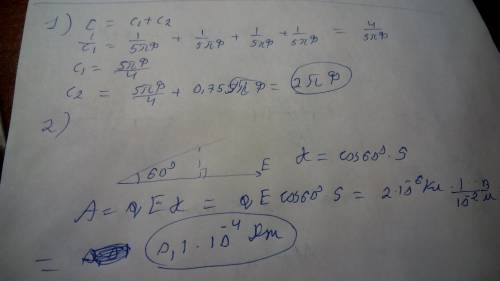 1) C = C₁ + C₂
1/C₁ = 1/5пф + 1/5пф + 1/5пф + 1/5пф = 4/5пф
C₁ = 5пф/4
C₂ = 5пф/4 + 0,75 пф = 2пф
2)
60° E x = cos60°·S
A = qEx = qE cos60° S = 2·10⁻⁶ Кл · 1/10⁻² В/м
= 0,1·10⁻⁴ Дж